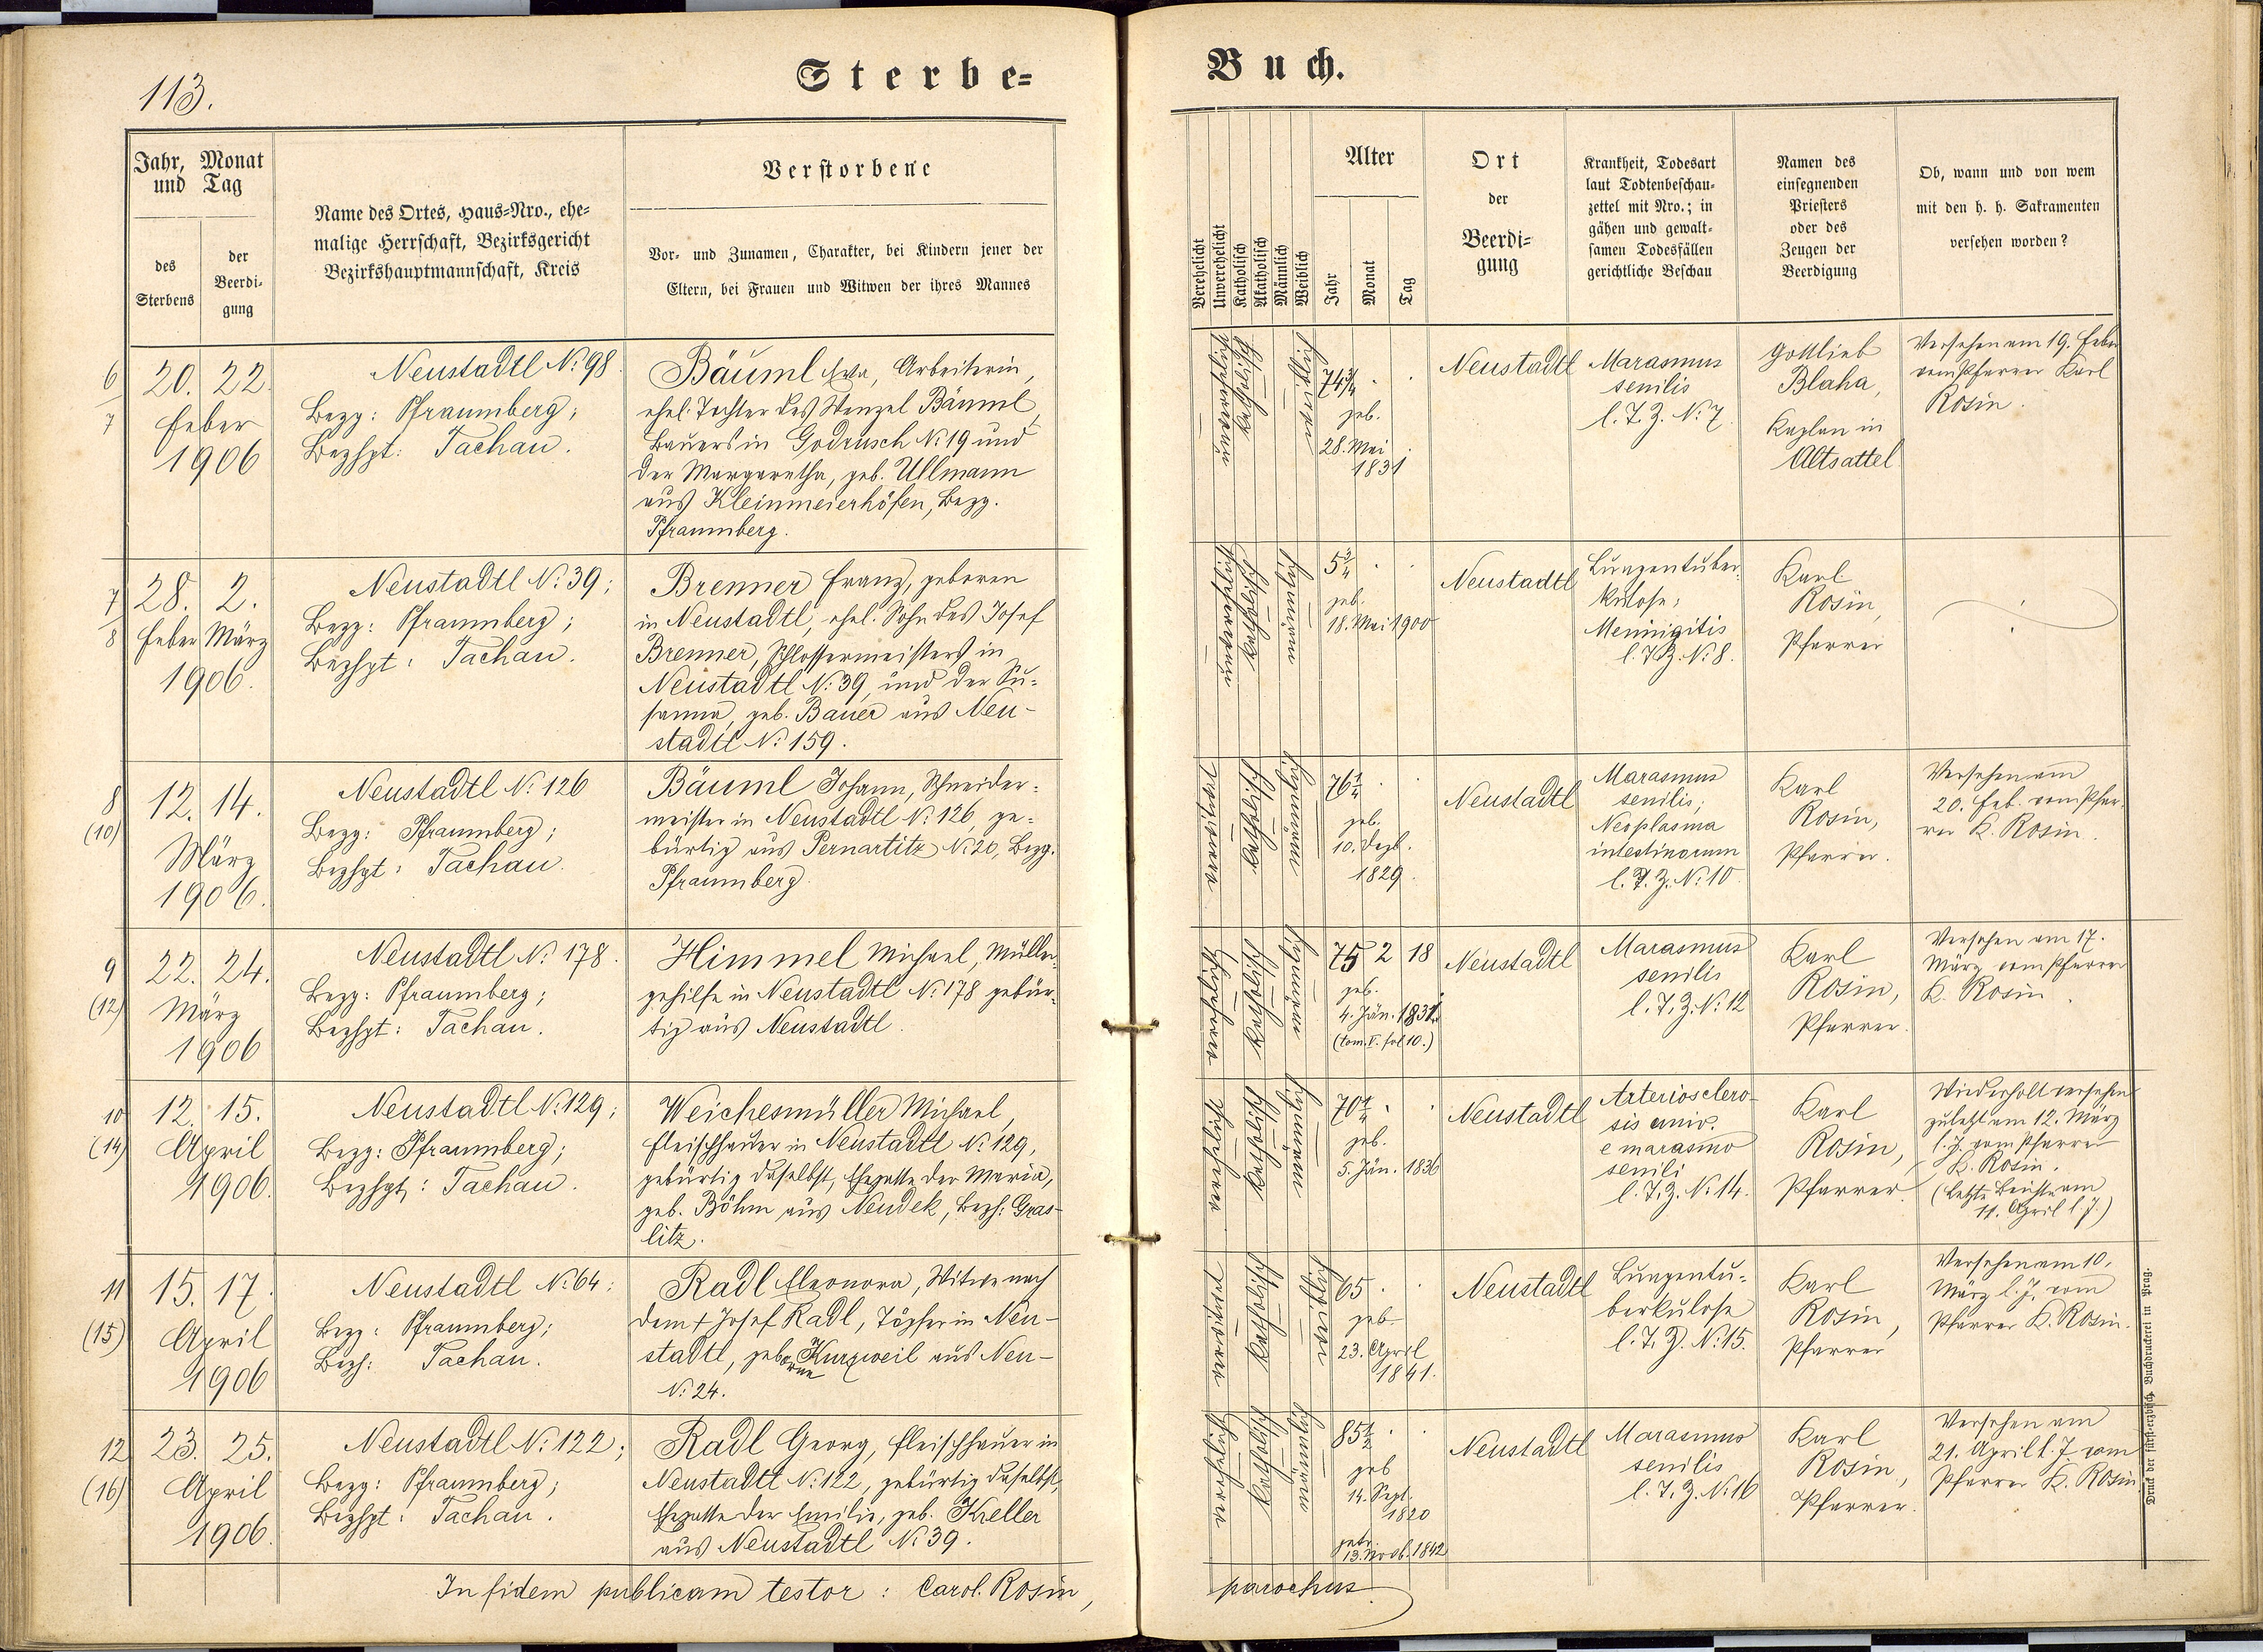 113.
Sterbe=
Buch.
Jahr, Monat
und Tag
des
Sterbens
der
Beerdi-
gung
Name des Ortes, Haus-Nro., ehe-
malige Herrschaft, Bezirksgericht
Bezirkshauptmannschaft, Kreis
Verstorbene
Vor- und Zunamen, Charakter, bei Kindern jener der
Eltern, bei Frauen und Witwen der ihres Mannes
Verehelicht
Unverehelicht
Katholisch
Akatholisch
Männlich
Weiblich
Alter
Jahr
Monat
Tag
Ort
der
Beerdi=
gung
Krankheit, Todesart
laut Todtenbeschau-
zettel mit Nro.; in
gähen und gewalt-
samen Todesfällen
gerichtliche Beschau
Namen des
einsegnenden
Priesters
oder des
Zeugen der
Beerdigung
Ob, wann und von wem
mit den h. h. Sakramenten
versehen worden?
6
7
20. 22.
Feber
1906
Neustadtl No. 98.
Bezg: Pfraumberg;
Bezhpt: Tachau.
Bäuml Eva, Arbeiterin,
ehel. Tochter des Wenzel Bäuml,
Bauers in Godrusch No. 19 und
der Margaretha, geb. Ullmann
aus Kleinmeierhöfen, Bezg.
Pfraumberg.
unverehel.
katholisch
weiblich
74 3/4 . .
geb.
28. Mai
1831
Neustadtl
Marasmus
senilis
l. T. Z. No. 7.
Gottlieb
Blaha,
Kaplan in
Altsattel
Versehen am 19. Feber
vom Pfarrer Karl
Rosin.
7
8
28. 2.
Feber März
1906.
Neustadtl No. 39;
Bezg: Pfraumberg;
Bezhpt: Tachau.
Brenner Franz, geboren
in Neustadtl, ehel. Sohn des Josef
Brenner, Schlossermeisters in
Neustadtl No. 39, und der Su-
sanna, geb. Bauer aus Neu-
stadtl No. 159.
katholisch
männlich
5 3/4 . .
geb.
18. Mai 1900
Neustadtl
Lungentuber-
kulose;
Meninigitis
l. T. Z. No. 8.
Karl
Rosin,
Pfarrer
8
(10)
12. 14.
März
1906.
Neustadtl No. 126
Bezg: Pfraumberg;
Bezhpt: Tachau.
Bäuml Johann, Schneider-
meister in Neustadtl No. 126, ge-
bürtig aus Pernartitz No. 20, Bezg.
Pfraumberg.
verwitwet
katholisch
männlich
76 1/4 .
geb.
10. Dezb.
1829.
Neustadtl
Marasmus
senilis;
Neoplasma
intestinorum
l. T. Z. No. 10.
Karl
Rosin,
Pfarrer.
Versehen am
20. Feb. vom Pfar-
rer K. Rosin.
9
(12)
22. 24.
März
1906
Neustadtl No. 178.
Bezg: Pfraumberg;
Bezhpt: Tachau.
Himmel Michael, Müller-
gehilfe in Neustadtl No. 178 gebür-
tig aus Neustadtl.
verehelicht
katholisch
männlich
75 2 18
geb.
4. Jän. 1831
(tom. V. fol 10.)
Neustadtl
Marasmus
senilis
l. T. Z. No. 12
Karl
Rosin,
Pfarrer.
Versehen am 17.
März vom Pfarrer
K. Rosin.
10
(14)
12. 15.
April
1906.
Neustadtl No. 129;
Bezg: Pfraumberg;
Bezhpt: Tachau.
Weichesmüller Michael,
Fleischhauer in Neustadtl No. 129,
gebürtig daselbst, Ehegatte der Maria,
geb. Böhm aus Neudek, Bezh: Gras-
litz.
verehelicht
katholisch
männlich
70 1/4 . .
geb.
5. Jän. 1836
Neustadtl
Arterioscler­o-
sis univ.
e marasmo
senili
l. T. Z. No. 14.
Karl
Rosin,
Pfarrer.
Wiederholt versehen
zuletzt am 12. März
l. J. vom Pfarrer
K. Rosin.
(Letzte Beichte am
11. April l. J.)
11
(15)
15. 17.
April
1906
Neustadtl No. 64;
Bezg: Pfraumberg;
Bezh: Tachau.
Radl Eleonora, Witwe nach
dem + Josef Radl, Töpfer in Neu-
stadtl, geborne Kurzweil aus Neu-
No. 24.
verwitwet
katholisch
weiblich
65 . .
geb.
23. April
1841.
Neustadtl
Lungentu-
berkulose
l. T. Z. No. 15.
Karl
Rosin,
Pfarrer
Versehen am 10.
März l. J. vom
Pfarrer K. Rosin.
12
(16)
23. 25.
April
1906.
Neustadtl No. 122;
Bezg: Pfraumberg;
Bezhpt: Tachau.
Radl Georg, Fleischhauer in
Neustadtl No. 122, gebürtig daselbst,
Ehegatte der Emilie, geb. Kreller
aus Neustadtl No. 39.
verehelicht
katholisch
männlich
85 1/2 . .
geb
14. Sept.
1820
13. Novb. 1842
Neustadtl
Marasmus
senilis
l. T. Z. No. 16
Karl
Rosin,
Pfarrer.
Versehen am
21. April l. J. vom
Pfarrer K. Rosin
In fidem publicam testor: Carol. Rosin,
parochus
Druck der fürst-erzbisch. Buchdruckerei in Prag.